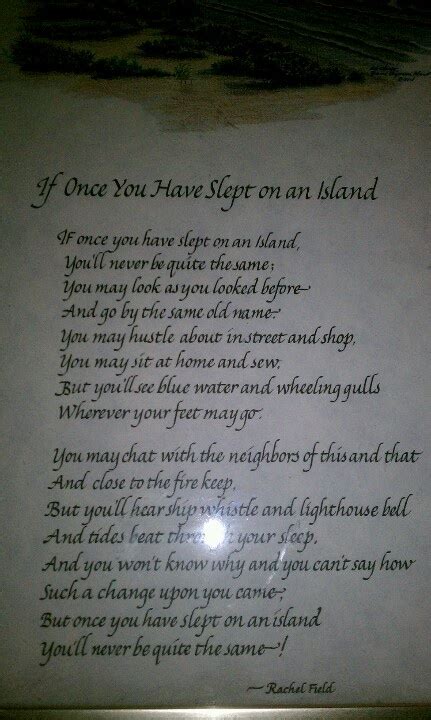 If Once You Have Slept on an Island
IF once you have slept on an Island,
You'll never be quite the same;
You may look as you looked before—
And go by the same old name—
You may hustle about in street and shop,
You may sit at home and sew,
But you'll see blue water and wheeling gulls
Wherever your feet may go.
You may chat with the neighbors of this and that
And close to the fire keep,
But you'll hear ship whistle and lighthouse bell
And tides beat through your sleep,
And you won't know why and you can't say how
Such a change upon you came—,
But once you have slept on an island
You'll never be quite the same—!
—Rachel Field